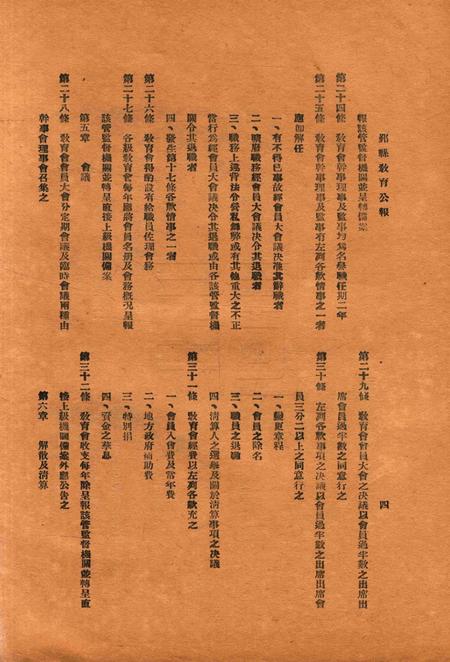 鄞縣教育公報
四
報該管監督機關並轉呈備案
第二十四條　教育會幹事理事及監事均為名譽職任期二年
第二十五條　教育會幹事理事及監事有左列各款情事之一者
應即解任
一、有不得已事故經會員大會議決准其辭職者
二、曠廢職務經會員大會議決令其退職者
三、職務上違背法令營私舞弊或有其他重大之不正
當行為經會員大會議決令其退職或由各該管監督機
關令其退職者
四、發生第十七條各款情事之一者
第二十六條　教育會得酌設有給職員佐理會務
第二十七條　各級教育會每年應將會員名册及會務概况呈報
該管監督機關並轉呈直接上級機關備案
第五章　會議
第二十八條　教育會會員大會分定期會議及臨時會議兩種由
幹事會理事會召集之
第二十九條　教育會會員大會之決議以會員過半數之出席出
席會員過半數之同意行之
第三十條　左列各款事項之決議以會員過半數之出席出席會
員三分二以上之同意行之
一、變更章程
二、會員之除名
三、職員之退職
四、清算人之選舉及關於清算事項之決議
第三十一條　教育會經費以左列各款充之
一、會員入會費及常年費
二、地方政府補助費
三、特別捐
四、資金之孳息
第三十二條　教育會收支每年除呈報該管監督機關並轉呈直
接上級機關備案外應公告之
第六章　解散及清算